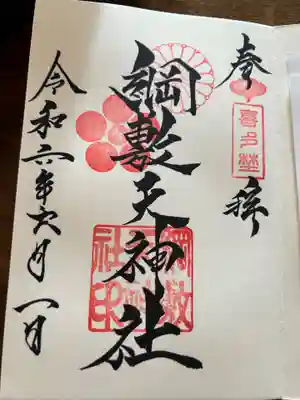 奉拝
喜多埜
綱敷天神社
綱敷
天神
社印
令和六年六月一日